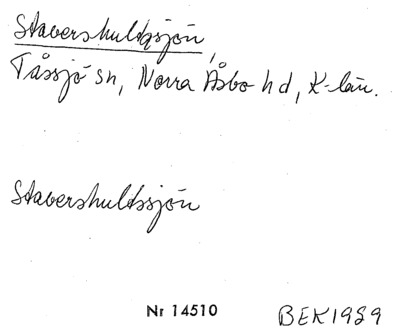 Stavershultasjön,
Tåssjö sn, Norra Åsbo hd, K-län.
Stavershultssjön
Nr 14510 BEK1989